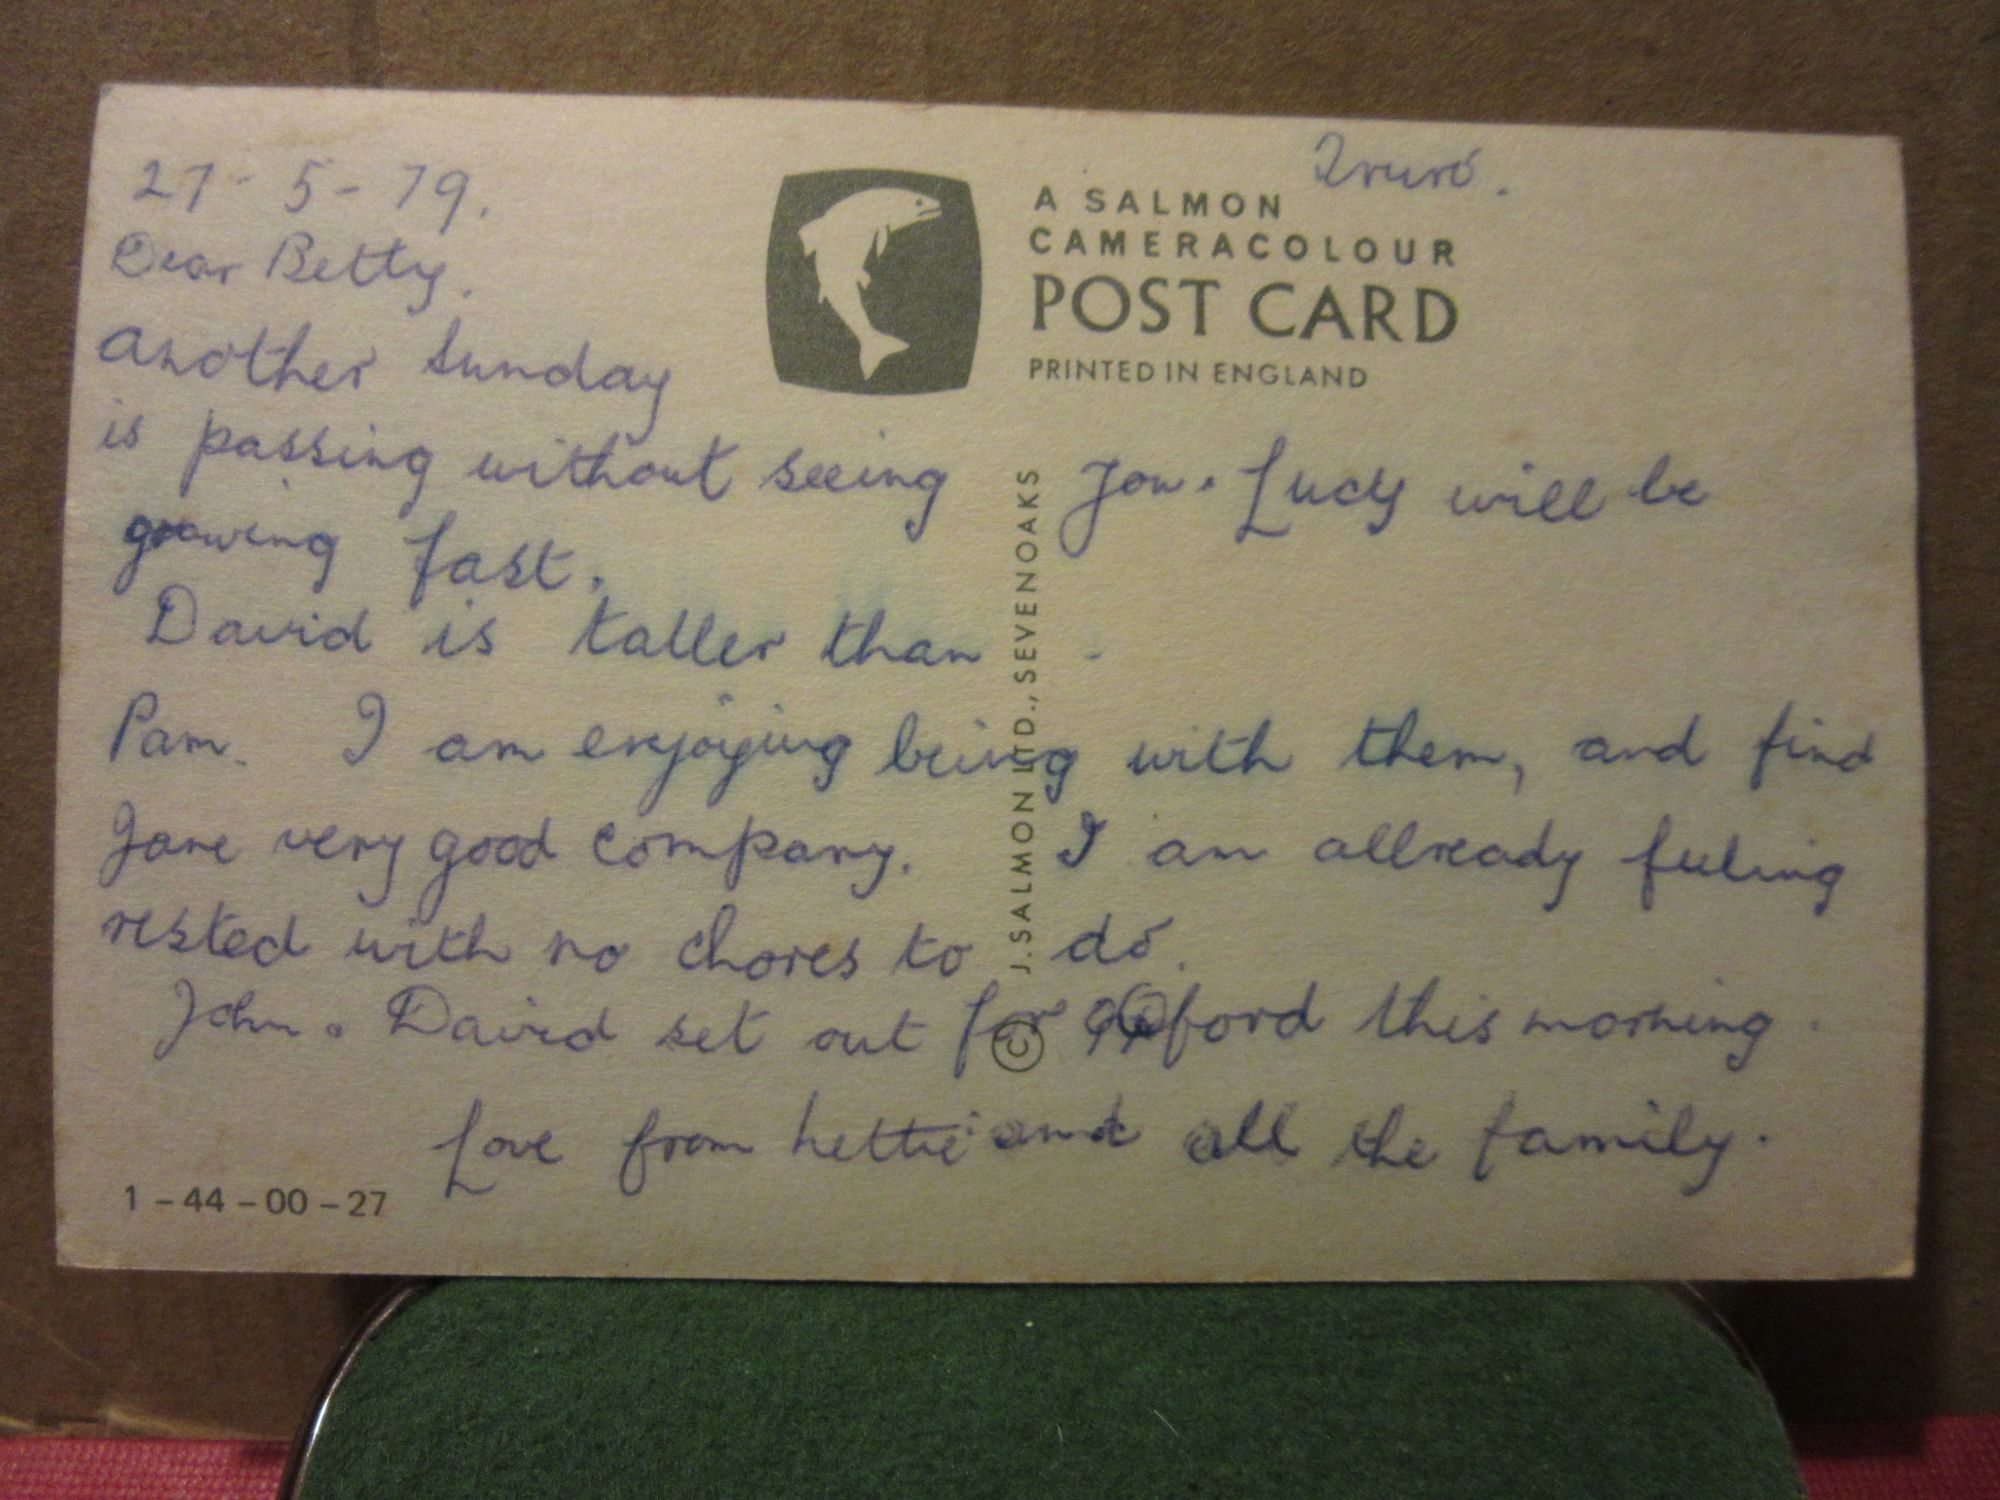 27-5-79.
Truro.
A SALMON
CAMERACOLOUR
POST CARD
PRINTED IN ENGLAND
Dear Betty.
Another Sunday
is passing without seeing you. Lucy will be
growing fast.
David is taller than -
Pam. I am enjoying being with them, and find
Jane very good company. I am allready feeling
rested with no chores to do.
John. David set out for Oxford this morning.
Love from hettie and all the family.
1-44-00-27
© J. SALMON LTD., SEVENOAKS